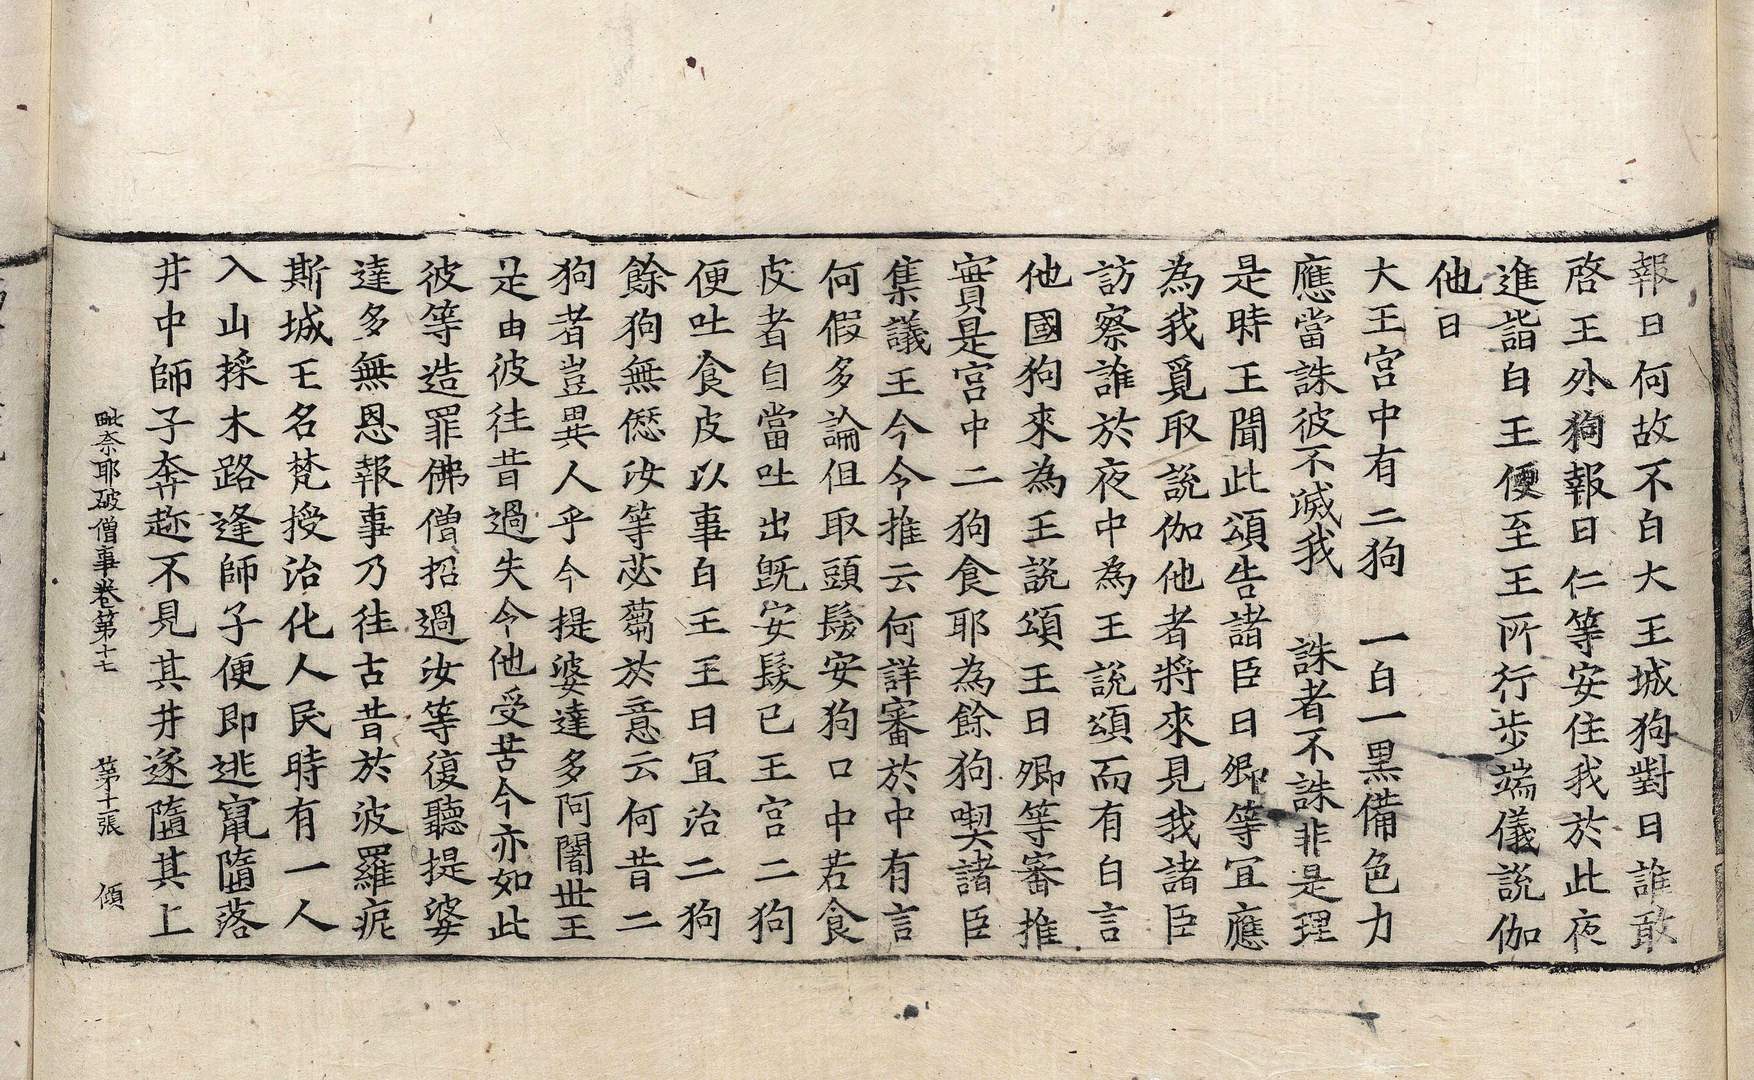 報曰何故不白大王城狗對曰誰敢
啓王外狗報曰仁等安住我於此夜
進詣白王便至王所行步端儀說伽
他曰
大王宮中有二狗　一白一黑備色力
應當誅彼不滅我　誅者不誅非是理
是時王聞此頌告諸臣曰卿等宜應
為我覓取說伽他者將來見我諸臣
訪察誰於夜中為王說頌而有白言
他國狗來為王說頌王曰卿等審推
實是宮中二狗食耶為餘狗喫諸臣
集議王今令推云何詳審於中有言
何假多論但取頭髮安狗口中若食
皮者自當吐出旣安髮已王宮二狗
便吐食皮以事白王王曰宜治二狗
餘狗無愆汝等苾蒭於意云何昔二
狗者豈異人乎今提婆達多阿闍世王
是由彼往昔過失今他受苦今亦如此
彼等造罪佛僧招過汝等復聽提婆
達多無恩報事乃往古昔於波羅痆
斯城王名梵授治化人民時有一人
入山採木路逢師子便即逃竄墮落
井中師子奔趂不見其井遂墮其上
毗奈耶破僧事卷第十七　第十一張　傾